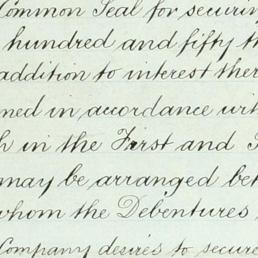 Common Seal for securin
hundred and fifty th
addition to interest ther
ned in accordance wit
h in the First and S
may be arranged bet
whom the Debentures
Company desires to secure